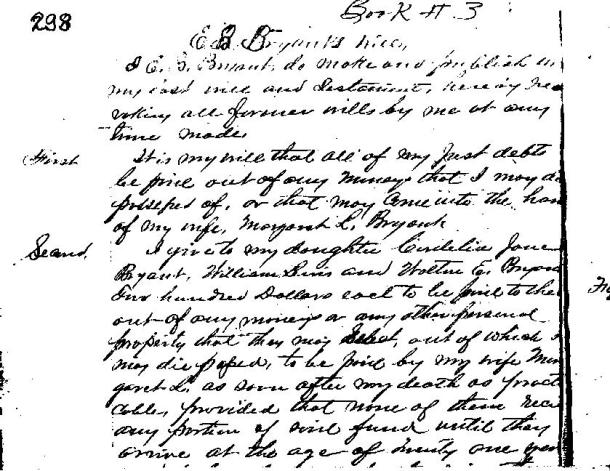 298
Book # 3
E. B. Bryant's Will,
I E. B. Bryant, do make and publish
my last will and Testament, hereby re
voking all former wills by me at any
time made.
First It is my will that all of my Just debts
be paid out of any moneys that I may di
possessed of, or that may come into the han
of my wife, Margaret L. Bryant
Second. I give to my daughter Cordelia Jane
Bryant, William and Walter E. Bryan
Two hundred Dollars each to be paid to the
out of any moneys or any other personal
property that they may select, out of which I
may die possessed, to be paid by my wife Mar
garet L. as soon after my death as practi
cable, provided that none of them rece
any portion of said fund until they
arrive at the age of twenty one years